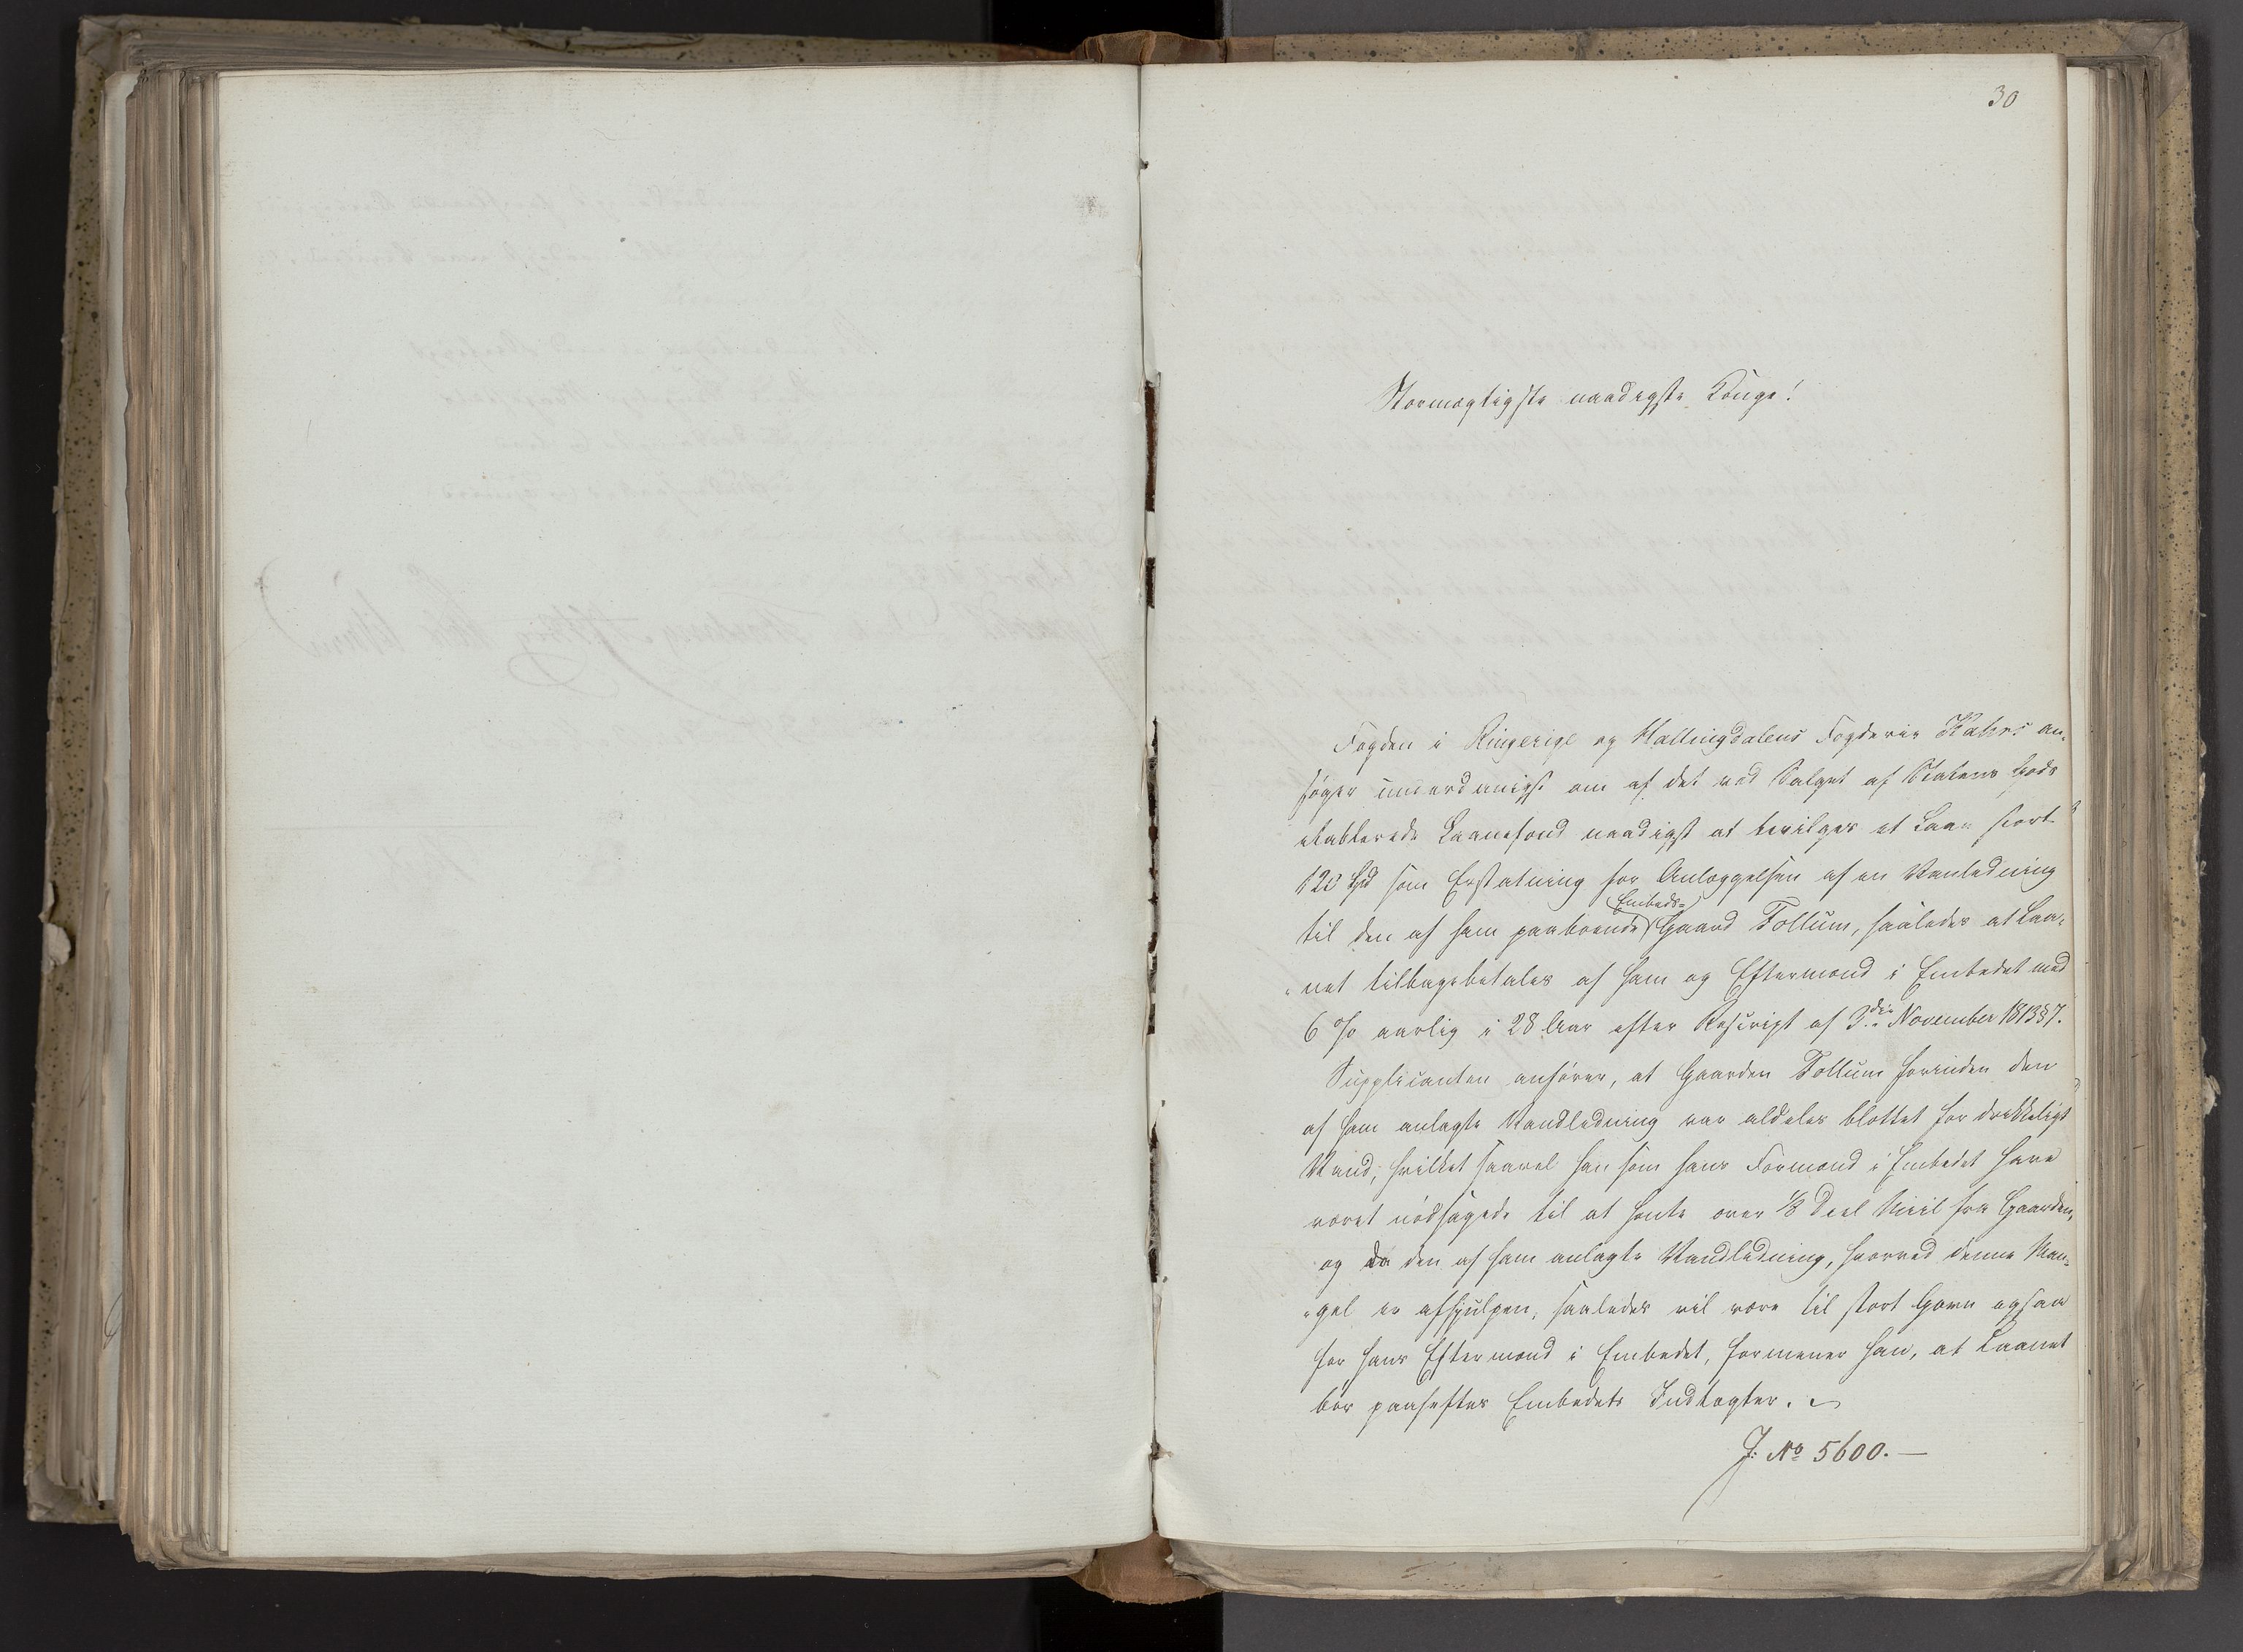 30
Stormægtigste naadigste Konge!
Fogden i Ringerige og Hallingdalens Fogderie Kahrs an-
søger underdanigst om af det ved Salget af Statens Gods
etablerede Laanefond naadigst at bevilges et Laan stort
120 Spd som Erstatning for Anlæggelsen af en Vanledning
til den af ham paaboende Embeds- Gaard Tollum, saaledes at Laa-
-net tilbagebetales af ham og Eftermænd i Embedet med
6 % aarlig i 28 Aar efter Rescript af 3die November 1813 § 7.
Supplicanten anfører, at Gaarden Tollum forinden den
af ham anlagte Vandledning var aldeles blottet for drikkeligt
Vand, hvilket saavel han som hans Formænd i Embedet have
været nødsagede til at hente over 1/8 Deel Miil fra Gaarden,
og da den af ham anlagte Vandledning, hvorved denne Man-
-gel er afhjulpen, saaledes vil være til stort Gavn ogsaa
for hans Eftermænd i Embedet, formener han, at Laanet
bør paaheftes Embedets Indtægter.
J: No 5600.—